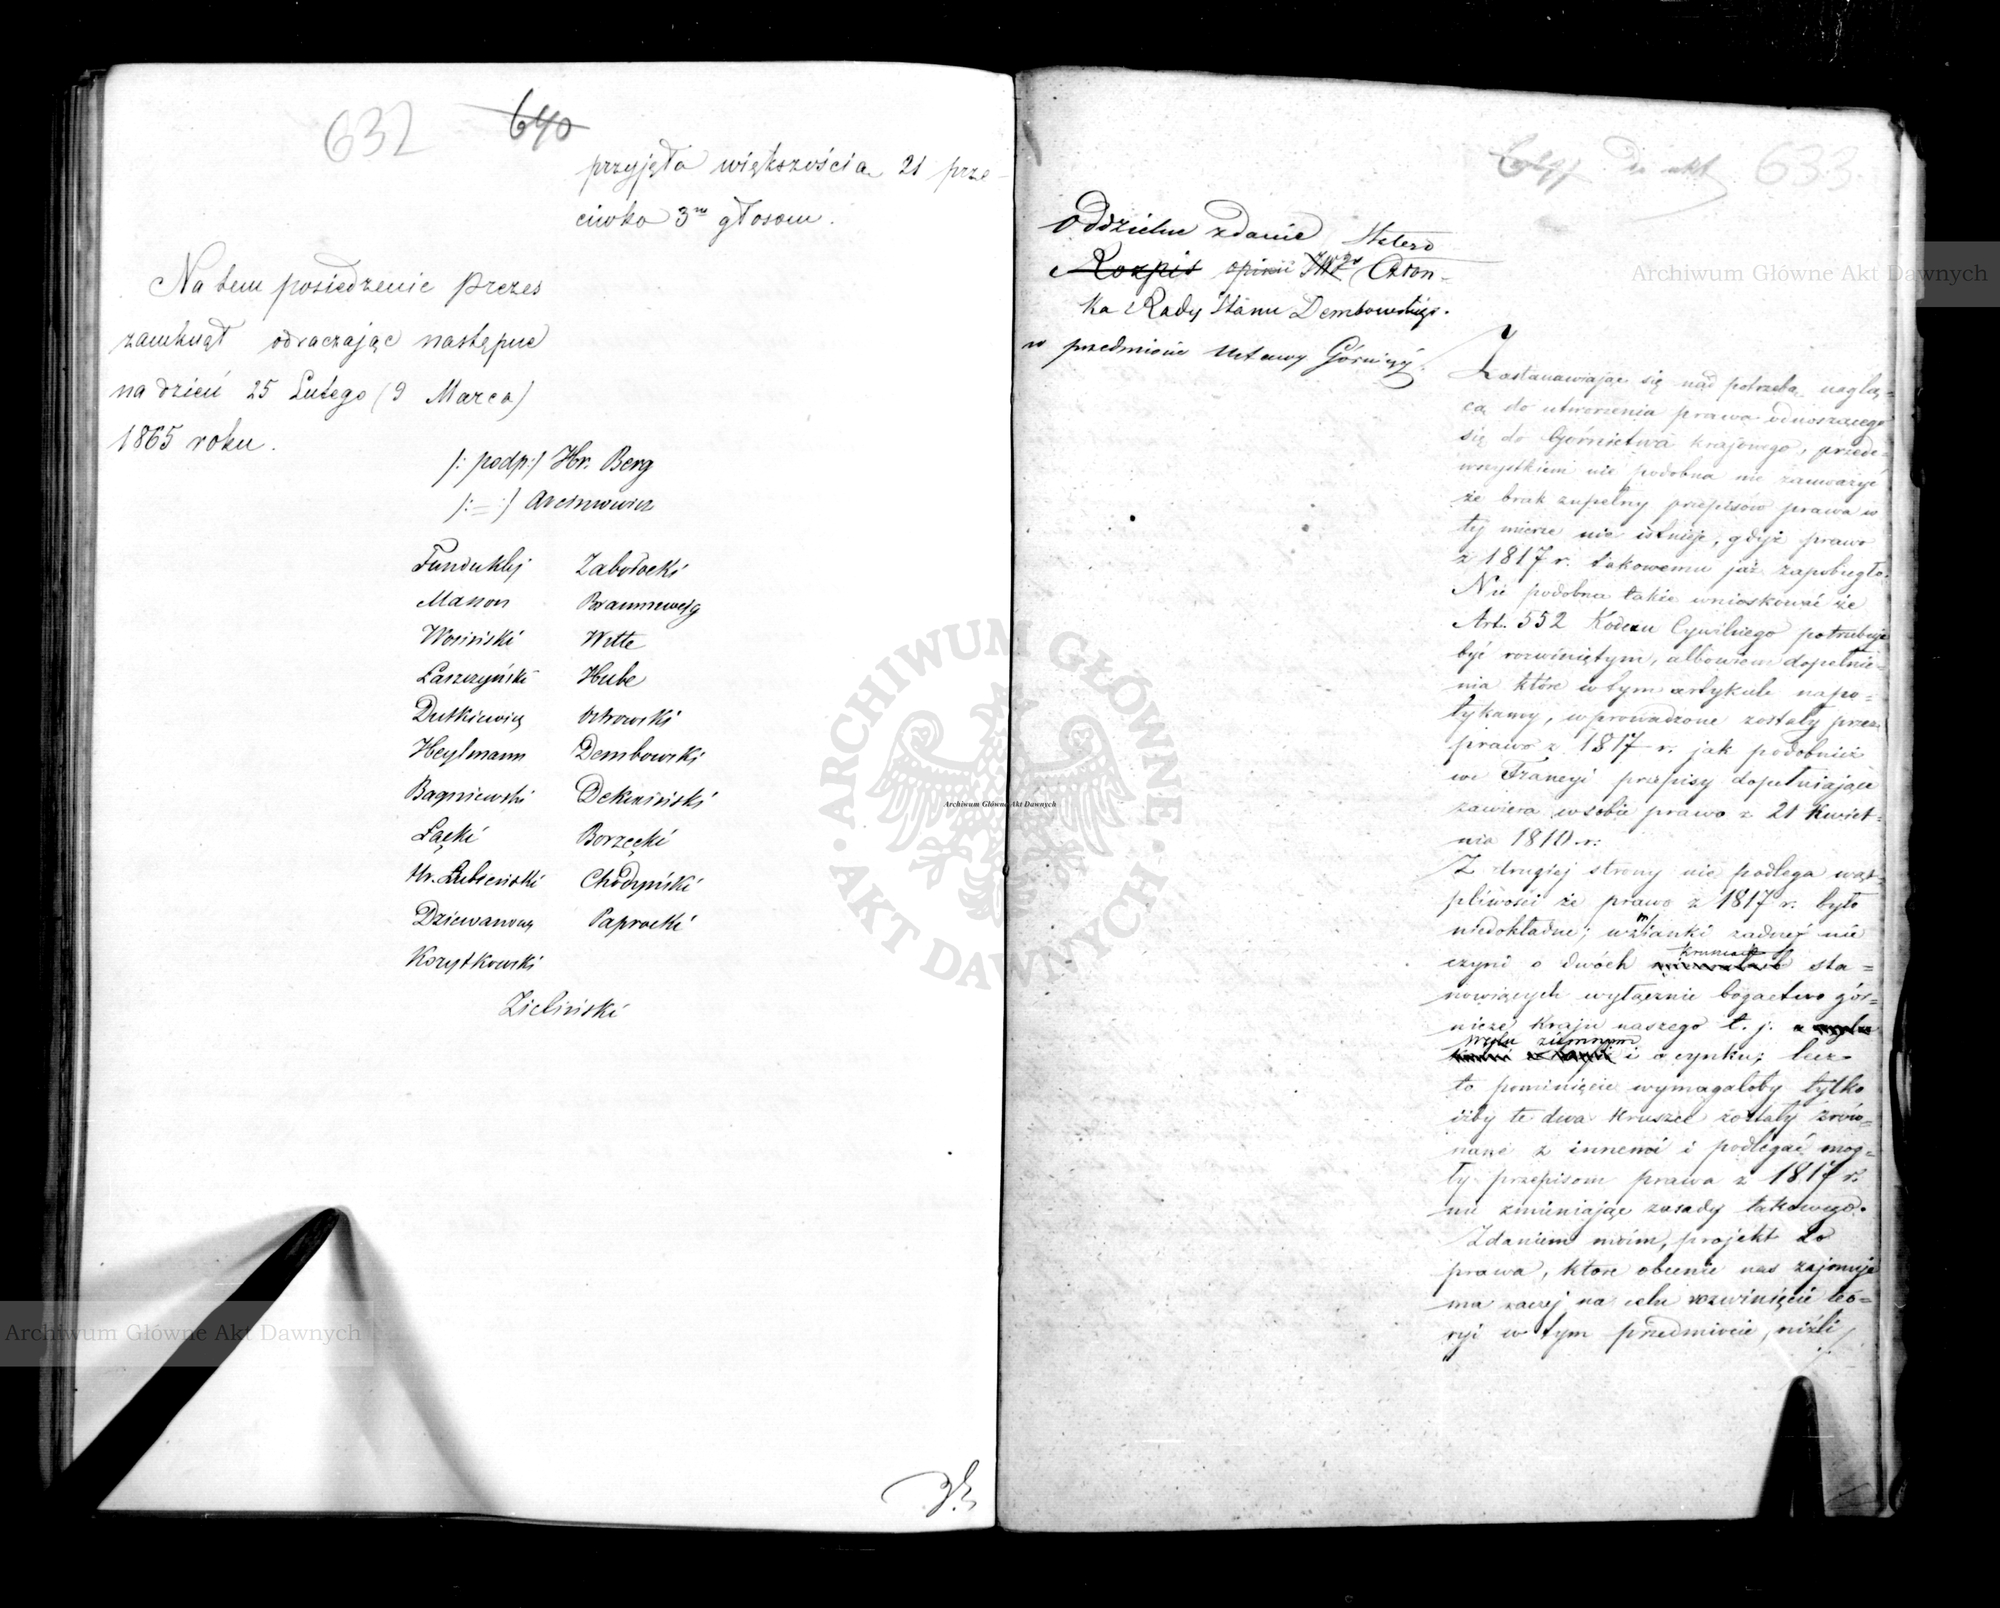 632
640
przyjęta większością 21 prze-
ciwko 3m głosom.
Na tem posiedzenie Prezes
zamknął odraczając następne
na dzień 25 Lutego (9 Marca)
1865 roku.
/: podp:/ Hr. Berg
/: = :/ Arcimowicz
Funduklej Zaborocki
Masson Braunsweig
Wosiński Witte
Łaszczyński Hube
Dutkiewicz Ostrowski
Heylmann Dembowski
Bagniewski
Łącki Borzęcki
Hr. Łubieński Chodyński
Dziewanowski Paprocki
Korytkowski
Zieliński
do akt 633.
Oddzielne zdanie
Rozpis opinii JWgo Człon-
ka Rady Stanu Dembowskiego.
w przedmiocie Ustawy Górniczej.
Zastanawiając się nad potrzebą nagłą-
cą do utworzenia prawa odnoszącego
się do Górnictwa krajowego, przede-
wszystkiem nie podobna nie zauważyć
że brak zupełny przepisów prawa w
tej mierze nie istnieje, gdyż prawo
z 1817 r. takowemu już zapobiegło.
Nie podobna także wnioskować że
Art. 552 Kodexu Cywilnego potrzebuje
być rozwiniętym, albowiem dopełnie-
nia które w tym artykule napo-
tykamy, wprowadzone zostały przez
prawo z 1817 r. jak podobnież
we Francyi przepisy dopełniające
zawiera w sobie prawo z 21 Kwiet-
nia 1810 r.
Z drugiej strony nie podlega wąt-
pliwości że prawo z 1817 r. było
niedokładne; wzmianki żadnej nie
czyni o dwóch kruszcach sta-
nowiących wyłącznie bogactwo gór-
nicze kraju naszego t. j. o
węglu ziemnym i o cynku; lecz
to pominięcie wymagałoby tylko
iżby te dwa kruszce zostały zrów-
nane z innemi i podlegać mog-
ły przepisom prawa z 1817 r.
nie zmieniając zasady takowego.
Zdaniem moim, projekt do
prawa, które obecnie nas zajmuje
ma raczej na celu rozwinięcie teo-
ryi w tym przedmiocie, niżli
Archiwum Główne Akt Dawnych
Archiwum Główne Akt Dawnych
Archiwum Główne Akt Dawnych
ARCHIWUM GŁÓWNE · AKT DAWNYCH ·